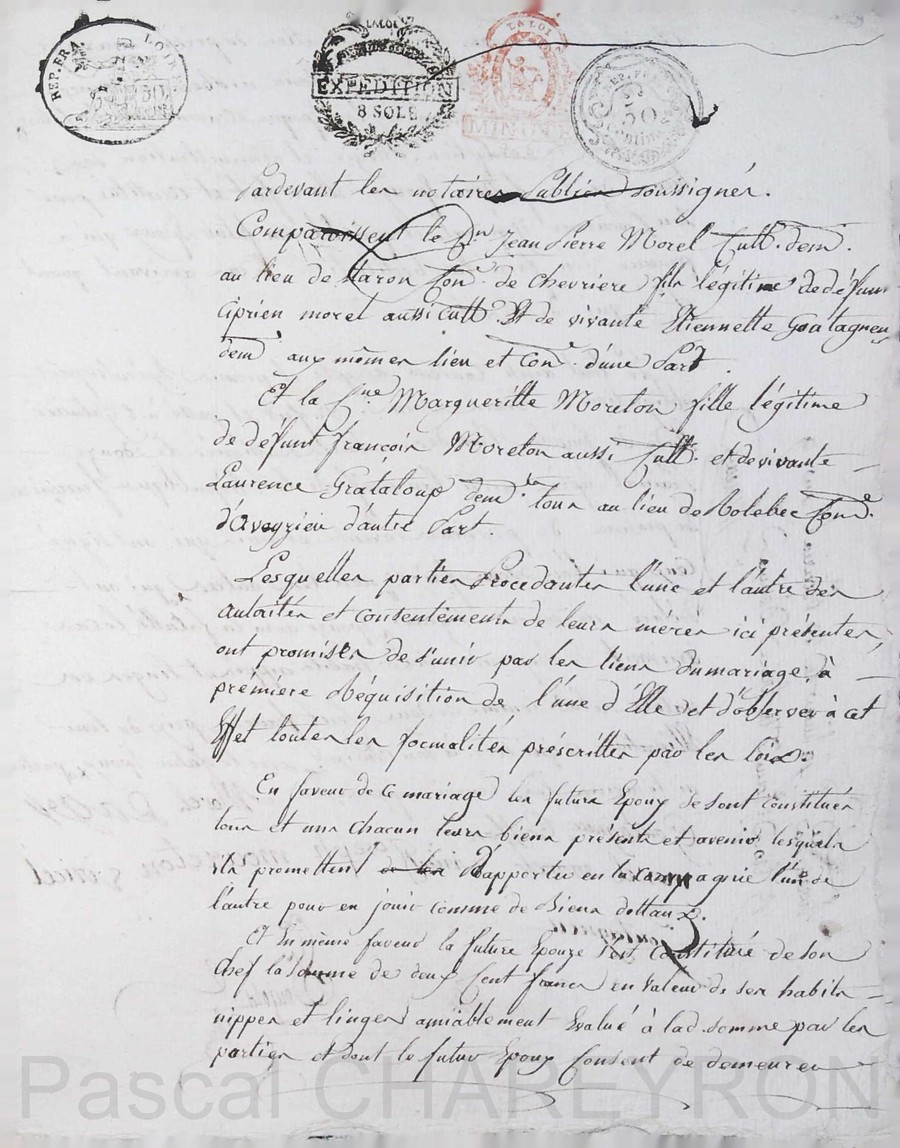 REP. FRA.
LA LOI
EXPEDITION
8 SOLS
LA LOI
MINUTE
REP. FRA.
50
Centimes
Pardevant les notaires Publics soussignés.
Comparoissent le Cn Jean Pierre Morel Cult. dem.
au lieu de Staron Cone de chevriere fils légitime de défunt
Ciprien morel aussi cultr. Et de vivante Etiennette Goutagneu
demt aux mêmes lieu et Cone d'une Part.
Et la Cne Margueritte Moreton fille légitime
de défunt françois Moreton aussi Cultr. et de vivante
Laurence Grataloup demts tous au lieu de Bolebec Cone
d'Aveyzieu d'autre Part.
Lesquelles parties Procedantes l'une et l'autre des
autorités et consentements de leurs mères ici présentes,
ont promises de s'unir par les liens du mariage, à
première Réquisition de l'une d'Elle et d'observer à cet
Effet toutes les formalités prescrittes par les loix.
En faveur de ce mariage les futurs Epoux se sont constitués
tous et uns chacun leurs biens présents et avenir lesquels
ils promettent d'apporter en la compagnie l'un de
l'autre pour en jouir comme de Biens dottaux.
Et En même faveur la future Epouze s'est constitué de son
Chef la somme de deux Cent francs en valeur de ses habits
nippes et linges amiablement Evalué à lad. somme par les
parties et dont le futur Epoux Consent de demeurer
Pascal CHAREYRON